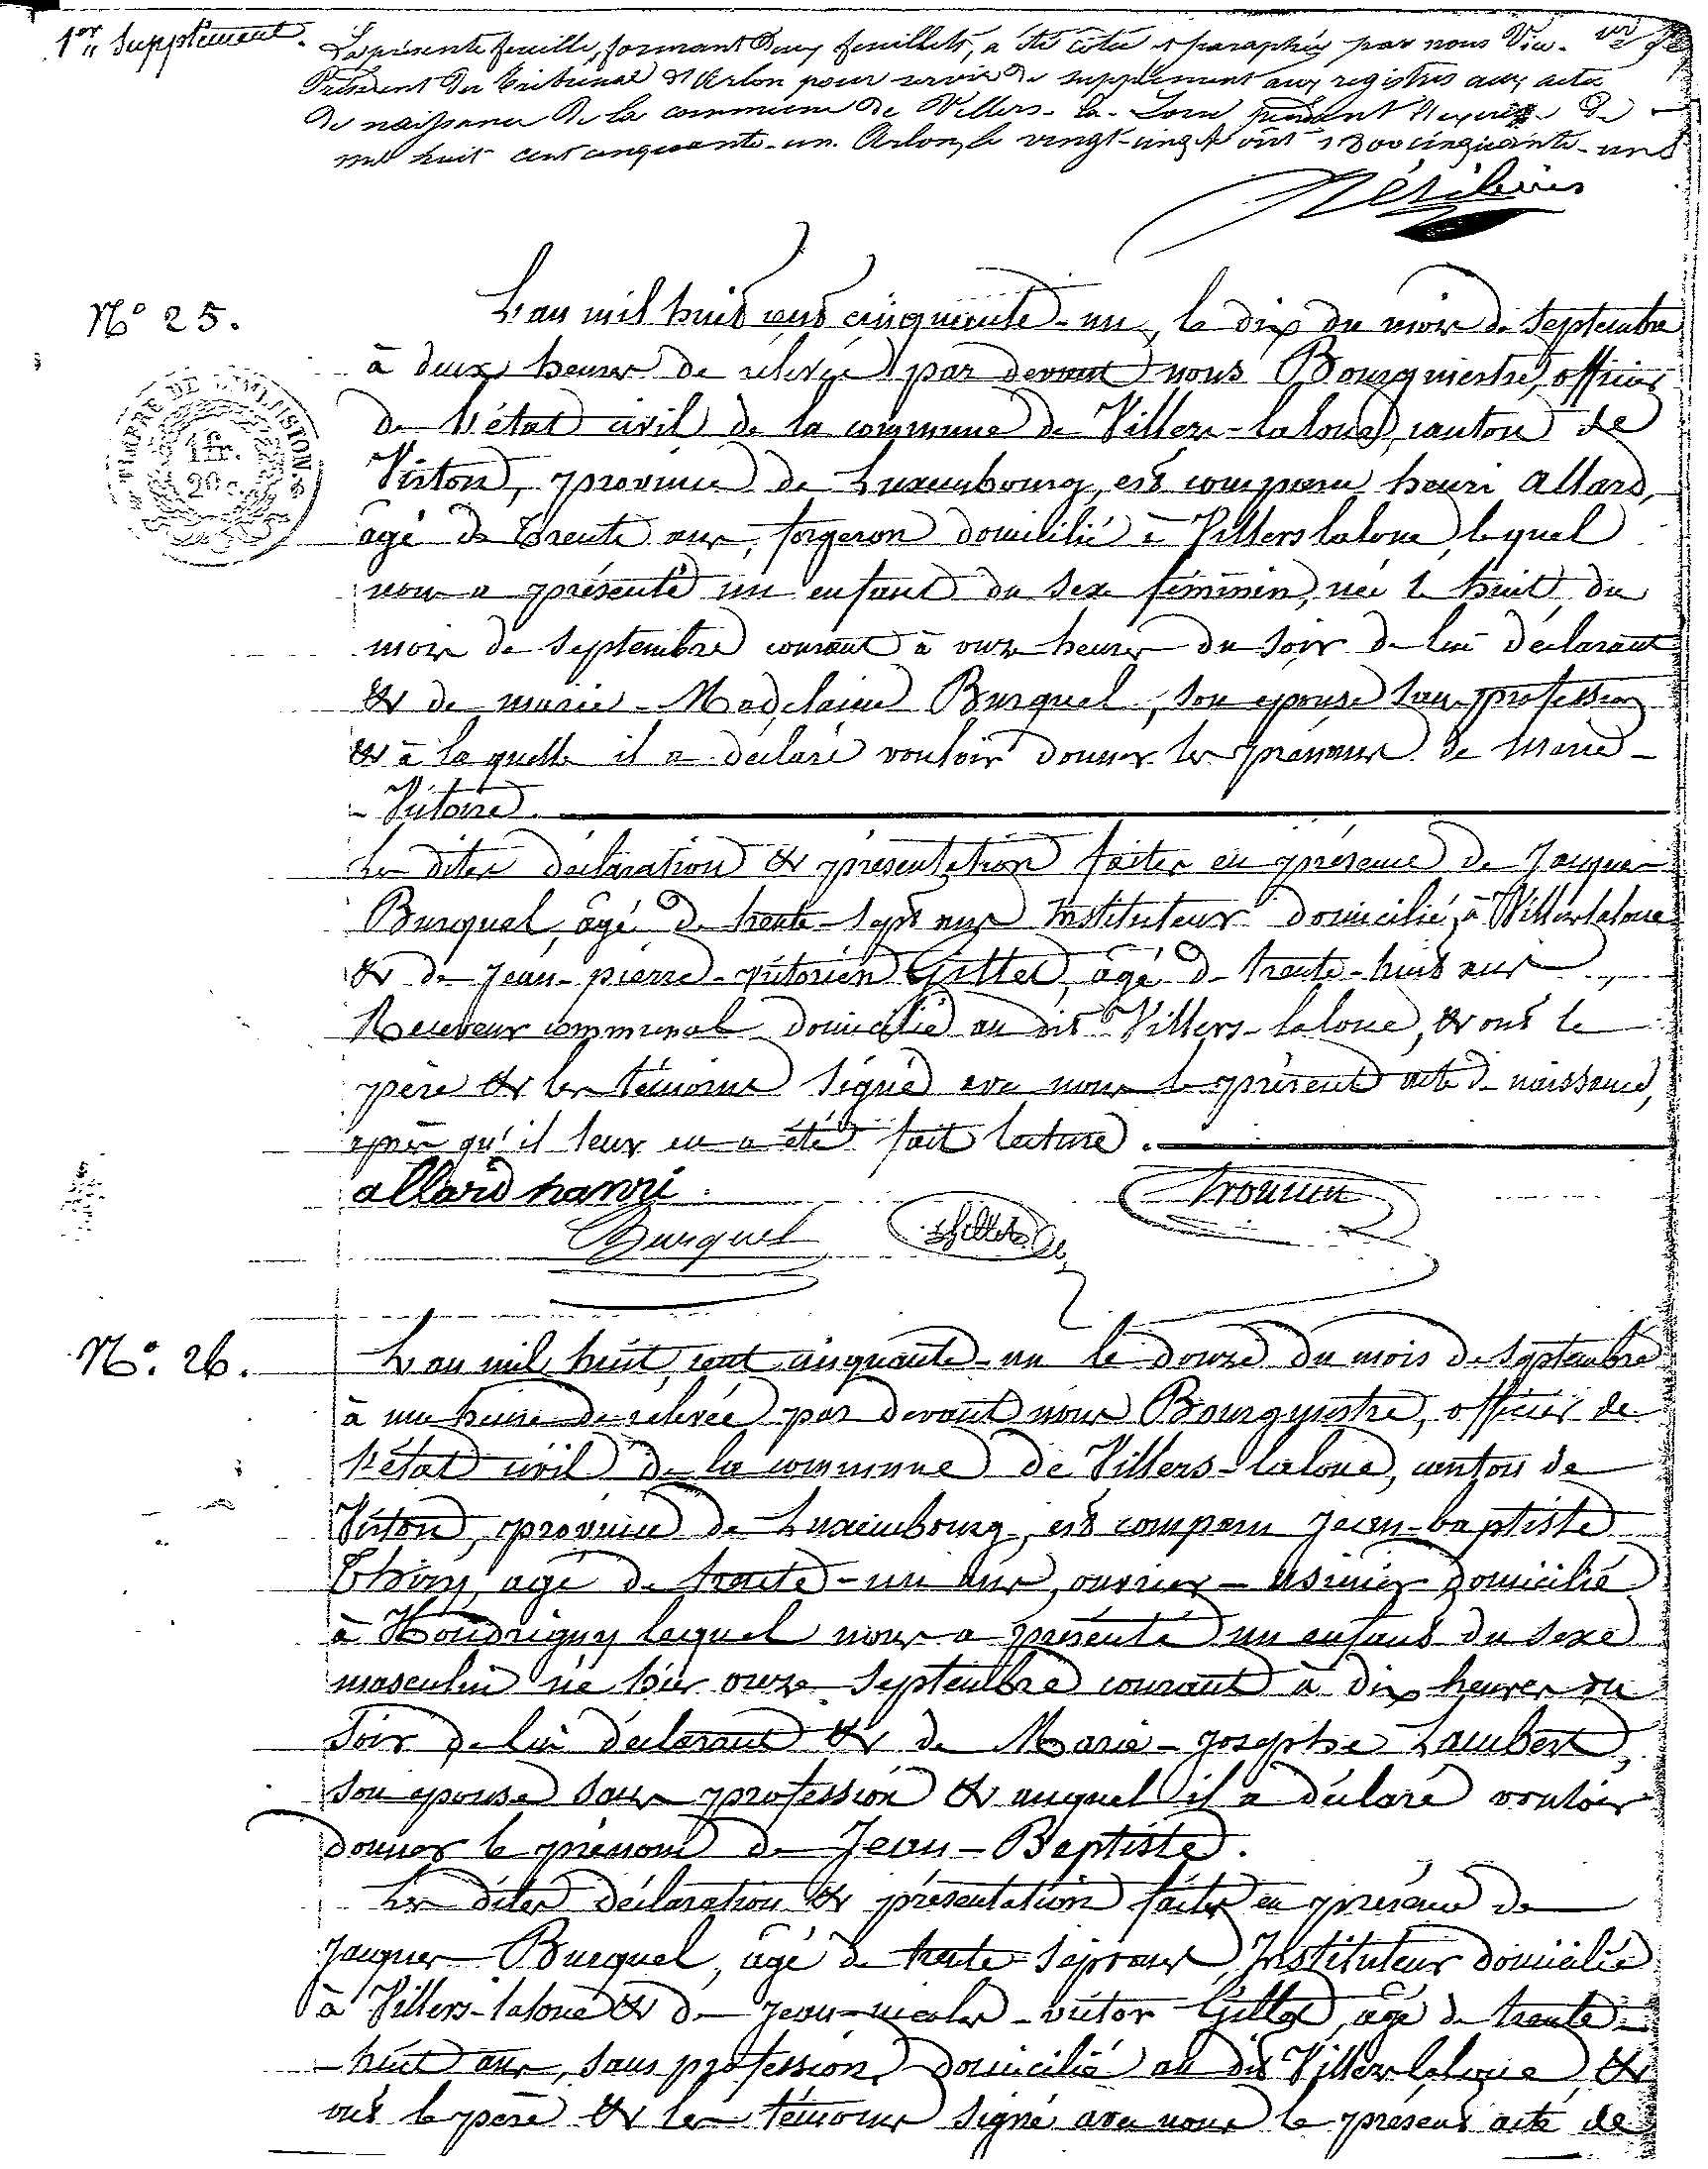 1er Supplément.
La présente feuille, formant deux feuillets, a été cotée et paraphée par nous Vice-
Président du Tribunal d'Arlon pour servir de supplément aux registres aux actes
de naissance de la commune de Villers-la-Loue pendant l'exercice de
mil huit cent cinquante-un. Arlon, le vingt-cinq août 1800 cinquante-un
N° 25.
L'an mil huit cent cinquante-un, le dix du mois de septembre
à deux heures de rélevée par devant nous Bourgmestre, officier
de l'état civil de la commune de Villers-laloue, canton de
Virton, province de Luxembourg, est comparu henri allard,
âgé de trente ans, forgeron domicilié à Villerslaloue, lequel
nous a présenté un enfant du sexe féminin, née le huit du
mois de septembre courant à onze heures du soir de lui déclarant
& de marie-Madelaine Burquel, son epouse sans profession
& à laquelle il a déclaré vouloir donner les prénoms de Marie-
- Victoire.
Les dites déclaration & présentation faites en présence de Jacques
Burquel, âgé de trente-sept ans Instituteur domicilié à Villerslaloue
& de Jean-pierre-victorien Gillet, âgé de trente-huit ans,
Receveur communal domicilié au dit Villers-laloue, & ont le
père & les témoins signé avec nous le présent acte de naissance,
après qu'il leur en a été fait lecture.
allard hanri
Burquel Gillet
TIMBRE DE DIMENSION.
1fr.
20c.
N°. 26.
L'an mil huit cent cinquante-un le douze du mois de septembre
à une heure de rélevée par devant nous Bourgmestre, officier de
l'état civil de la commune de Villers-laloue, canton de
Virton, province de Luxembourg, est comparu Jean-baptiste
Thiry, agé de trente-un ans, ouvrier-usinier domicilié
à Houdrigny lequel nous a présenté un enfant du sexe
masculin né hier onze septembre courant à dix heures du
soir de lui déclarant & de Marie-Josephe Lambert,
son epouse sans profession & auquel il a déclaré vouloir
donner le prénom de Jean-Baptiste.
Les dites déclaration & présentation faites en présence de
Jacques Burquel, âgé de trente-sept ans, Instituteur domicilié
à Villers-laloue & de Jean-nicolas-victor Gillet, âgé de trente-
-huit ans, sans profession, domicilié au dit Villerslaloue &
ont le père & les témoins signé avec nous le présent acte de